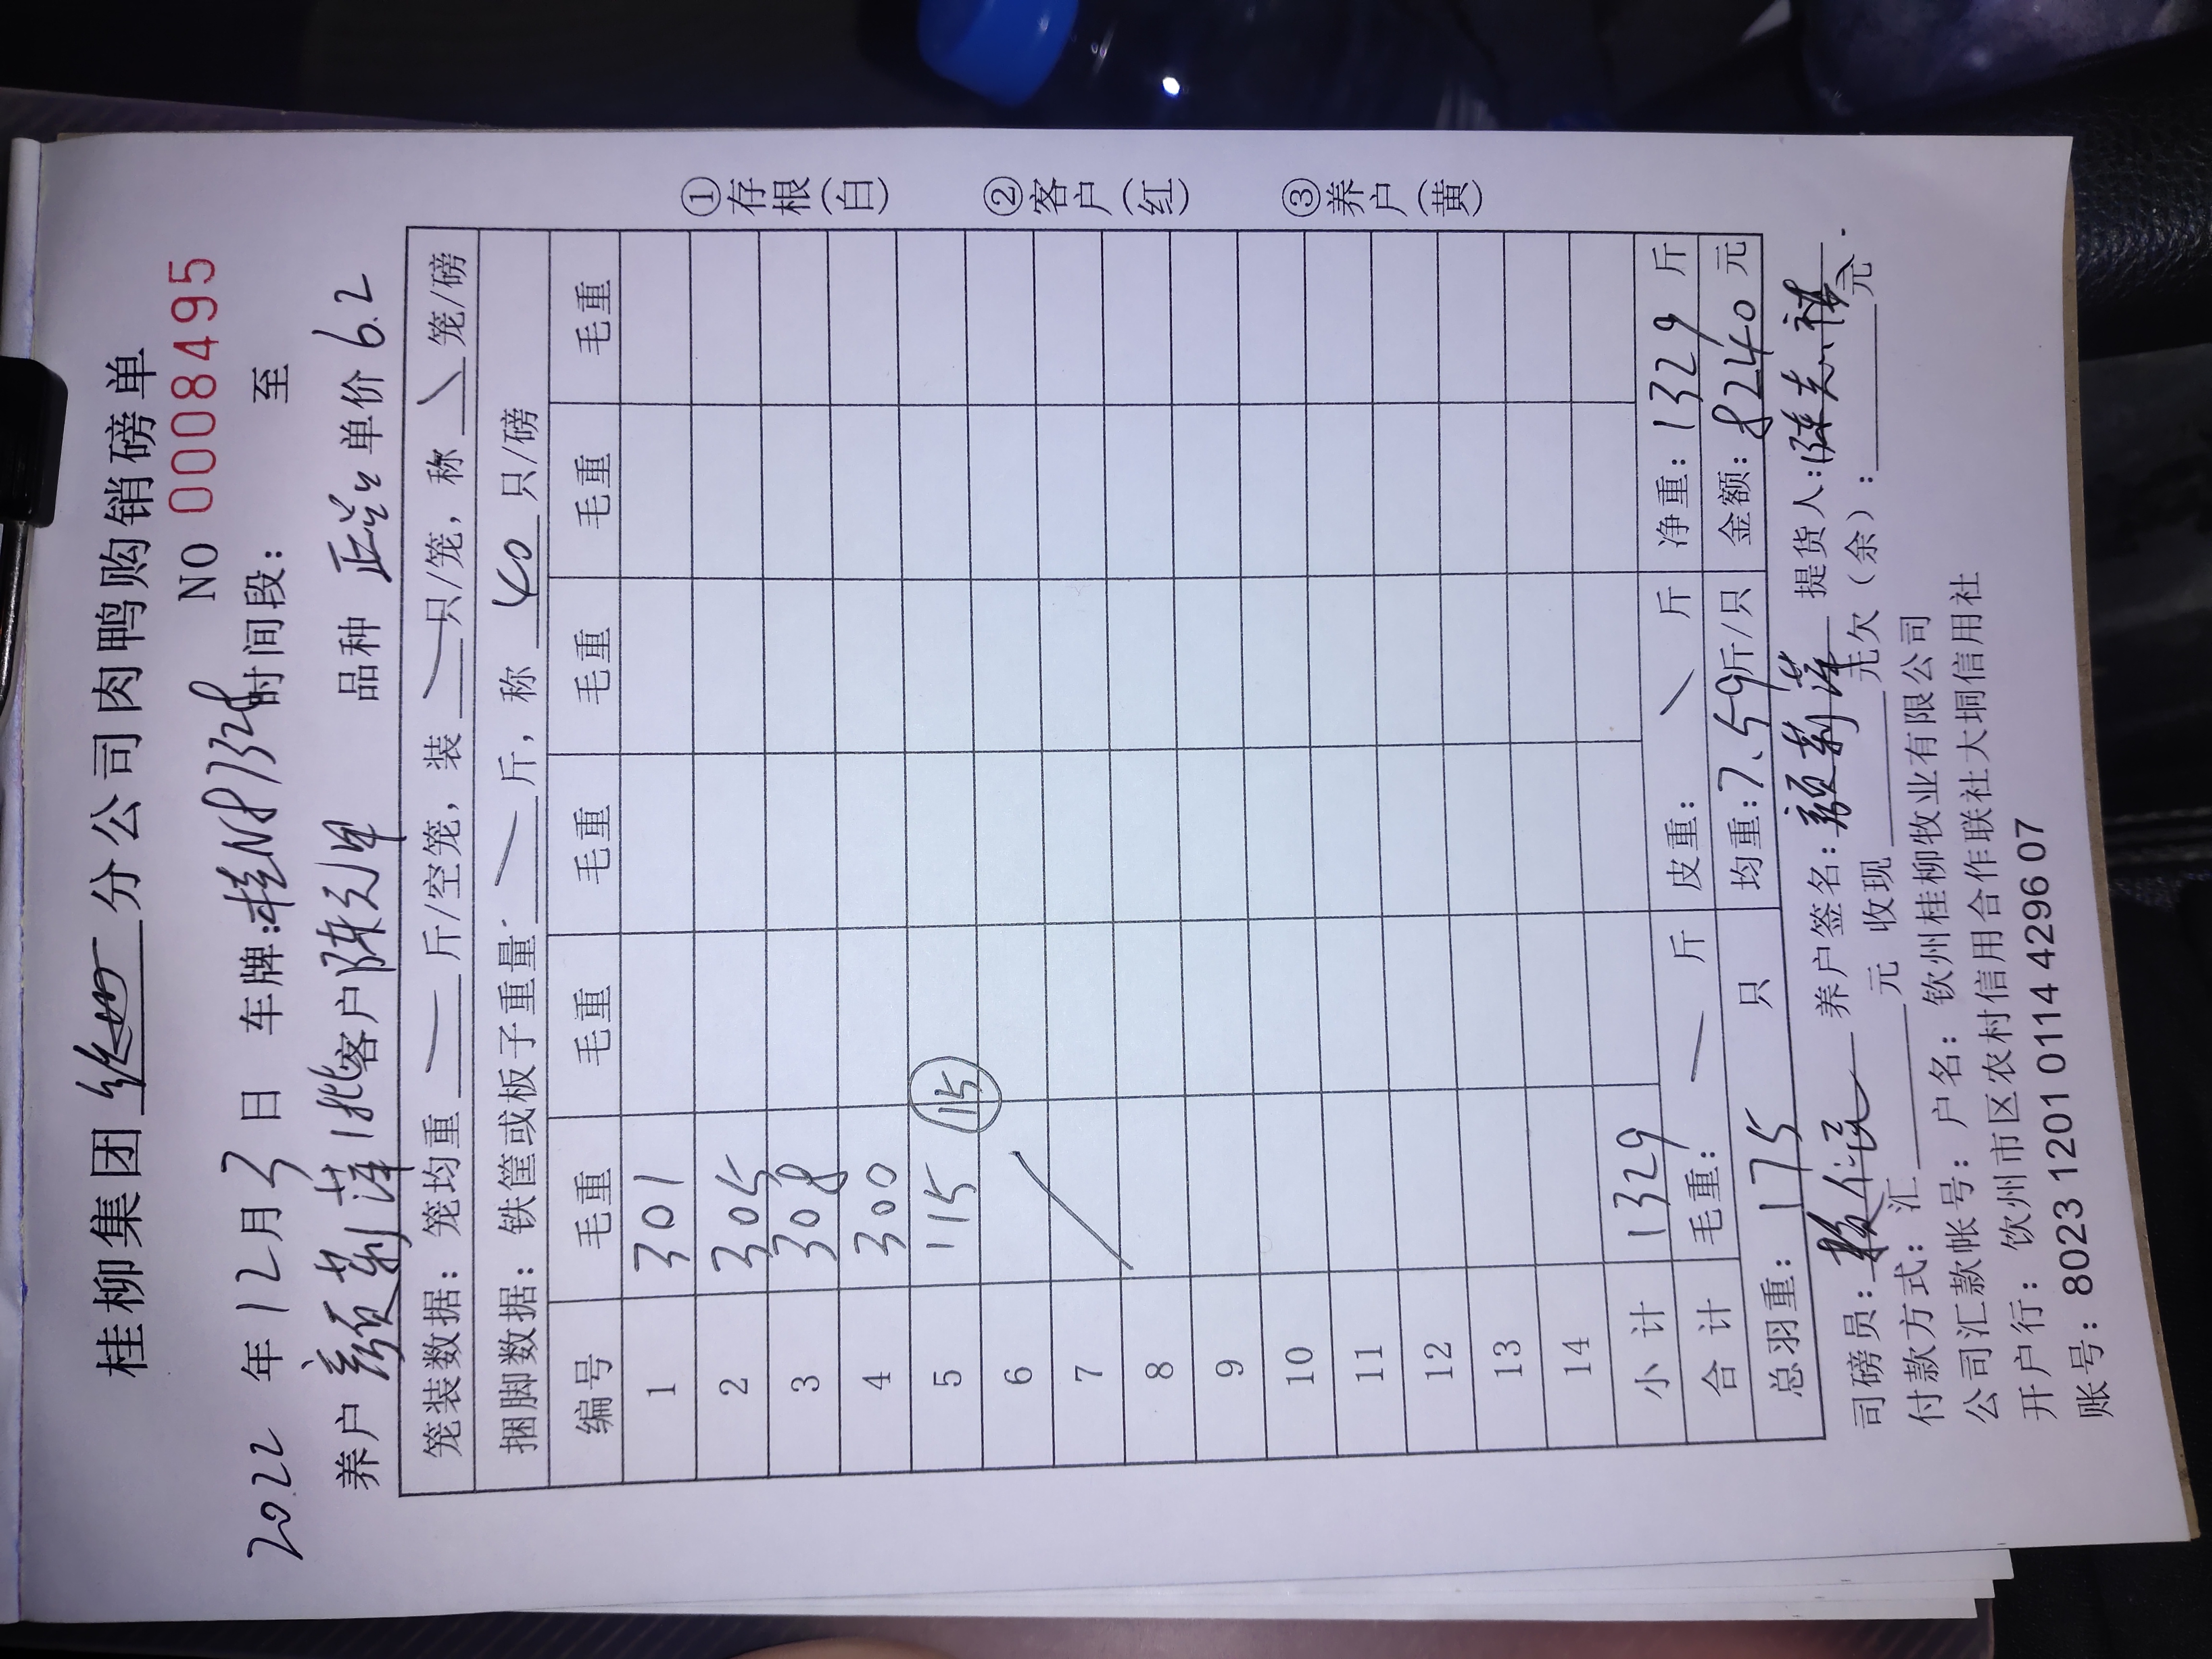 桂柳集团 分公司肉鸭购销磅单
NO 0008495
2022 年 12 月 3 日 车牌:桂N87328 时间段: 至
养户 颜莉萍 客户 陈 品种 单价 6.2
笼装数据: 笼均重 — 斤/空笼, 装 只/笼, 称 笼/磅
捆脚数据: 铁筐或板子重量 — 斤, 称 40 只/磅
编号 毛重 毛重 毛重 毛重 毛重 毛重
1 301
2 305
3 308
4 300
5 115 15
6
7
8
9
10
11
12
13
14
小计 1329
合计 毛重: — 斤 皮重: \ 斤 净重: 1329 斤
总羽重: 175 只 均重: 7.59 斤/只 金额: 8240 元
司磅员: 养户签名: 颜莉萍 提货人: 陈
付款方式: 汇 元 收现 元欠（余）: 元
公司汇款帐号: 户名: 钦州桂柳牧业有限公司
开户行: 钦州市区农村信用合作联社大垌信用社
账号: 8023 1201 0114 4296 07
①存根(白) ②客户(红) ③养户(黄)